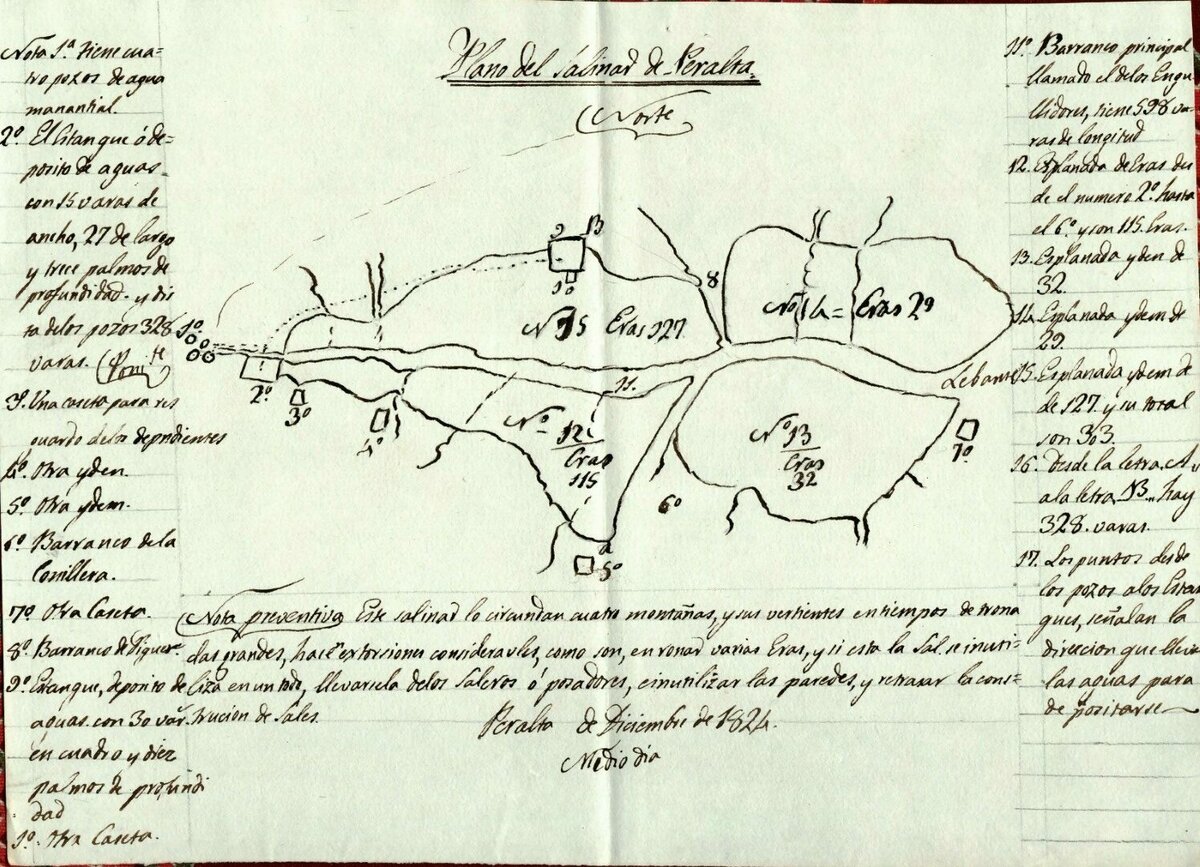 Plano del Salinar de Peralta.
Norte
Nota 1ª tiene cua=
tro pozos de agua
manantial.
2º El Estanque ó de=
posito de aguas
con 15 varas de
ancho, 27 de largo
y trece palmos de
profundidad y dis
ta de los pozos 328
varas.
3º Una caseta para res
guardo de los dependientes
4º Otra ydem.
5º Otra ydem.
6º Barranco de la
Cosillera.
7º Otra Caseta.
8º Barranco de
9º Estanque, deposito de
aguas con 30 var.
en cuadro y diez
palmos de profundi
dad
1º Otra Caseta.
1º
2º
3º
4º
9 B
1º
8
Nº 15 Eras 127
Nº 14 = Eras 29
11.
Lebante
Nº 12
Eras
115
Nº 13
Eras
32
7º
6º
a
5º
11º Barranco principal
llamado el de los Engu
llidores, tiene 598 va=
ras de longitud
12. Esplanada de Eras des
de el numero 2º hasta
el 6º y son 115 Eras.
13. Esplanada ydem de
32.
14. Esplanada ydem de
29.
15. Esplanada ydem de
de 127. y su total
son 303.
16. Desde la letra A
a la letra B hay
328. varas.
17. Los puntos desde
los pozos a los Estan
ques, señalan la
direccion que lleva
las aguas para
depositarse
Nota preventiva Este salinar lo circundan cuatro montañas, y sus vertientes en tiempos de trona
das grandes, hace extorsiones considerables, como son, enronar varias Eras, y si esta la Sal se inuti=
liza en un todo, llevarsela de los Saleros ó posadores, e inutilizar las paredes, y retrasar la cons=
trucion de Sales.
Peralta de Diciembre de 1824.
Medio dia